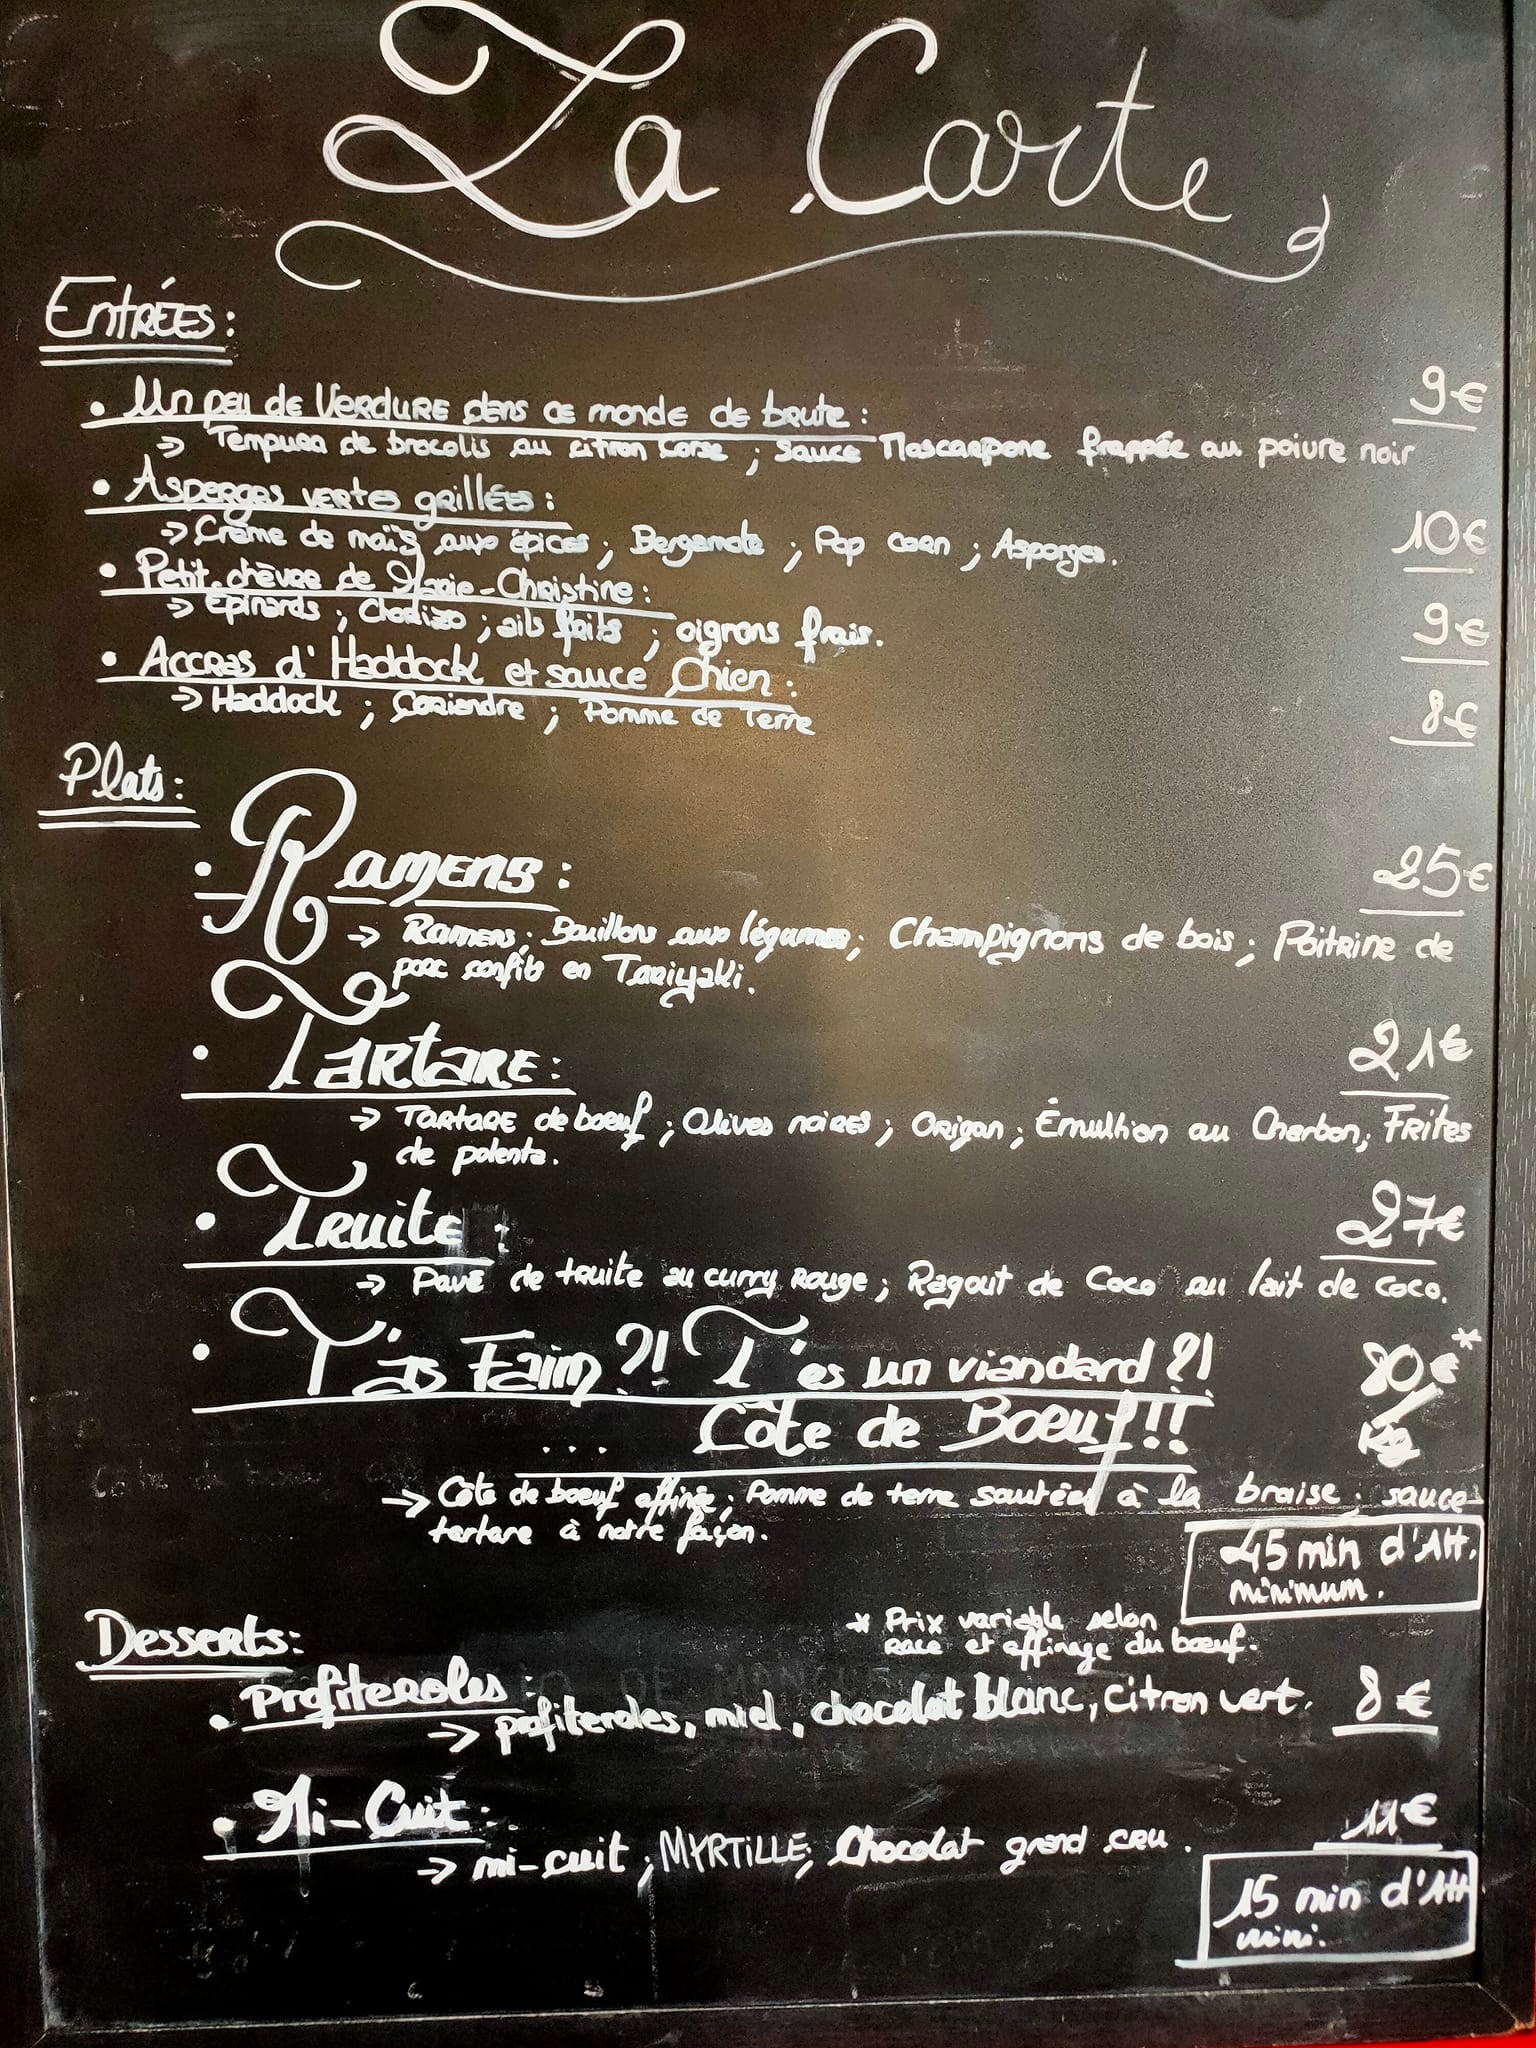 La Carte
Entrées:
• Un peu de Verdure dens ce monde de brute: 9€
→ Tempura de brocolis au citron Corse ; Sauce Mascarpone frappée au poivre noir
• Asperges vertes grillées: 10€
→ Crème de maïs aux épices ; Bergamote ; Pop corn ; Asperges.
• Petit chèvre de Marie-Christine: 9€
→ Epinards ; Chorizo ; ails frits ; oignons frais.
• Accras d'Haddock et sauce Chien: 8€
→ Haddock ; Coriandre ; Pomme de Terre
Plats:
• Ramens: 25€
→ Ramens; Bouillons aux légumes; Champignons de bois; Poitrine de
porc confits en Tariyaki.
• Tartare: 21€
→ Tartare de boeuf ; Olives noires ; Origan ; Émulhion au Charbon; Frites
de polenta.
• Truite: 27€
→ Pavé de truite au curry Rouge; Ragout de Coco au lait de coco.
• T'as Faim?! T'es un viandard?! 80€*/Kg
... Côte de Boeuf!!
→ Côte de boeuf affinée; Pomme de terre sautées à la braise; sauce
tartare à notre façon.
45 min d'Att.
minimum.
* Prix variable selon
race et affinage du boeuf.
Desserts:
• Profiteroles: 8€
→ profiteroles, miel, chocolat blanc, citron vert.
• Mi-Cuit: 11€
→ mi-cuit ; MYRTILLE; Chocolat grand cru.
15 min d'Att.
mini.